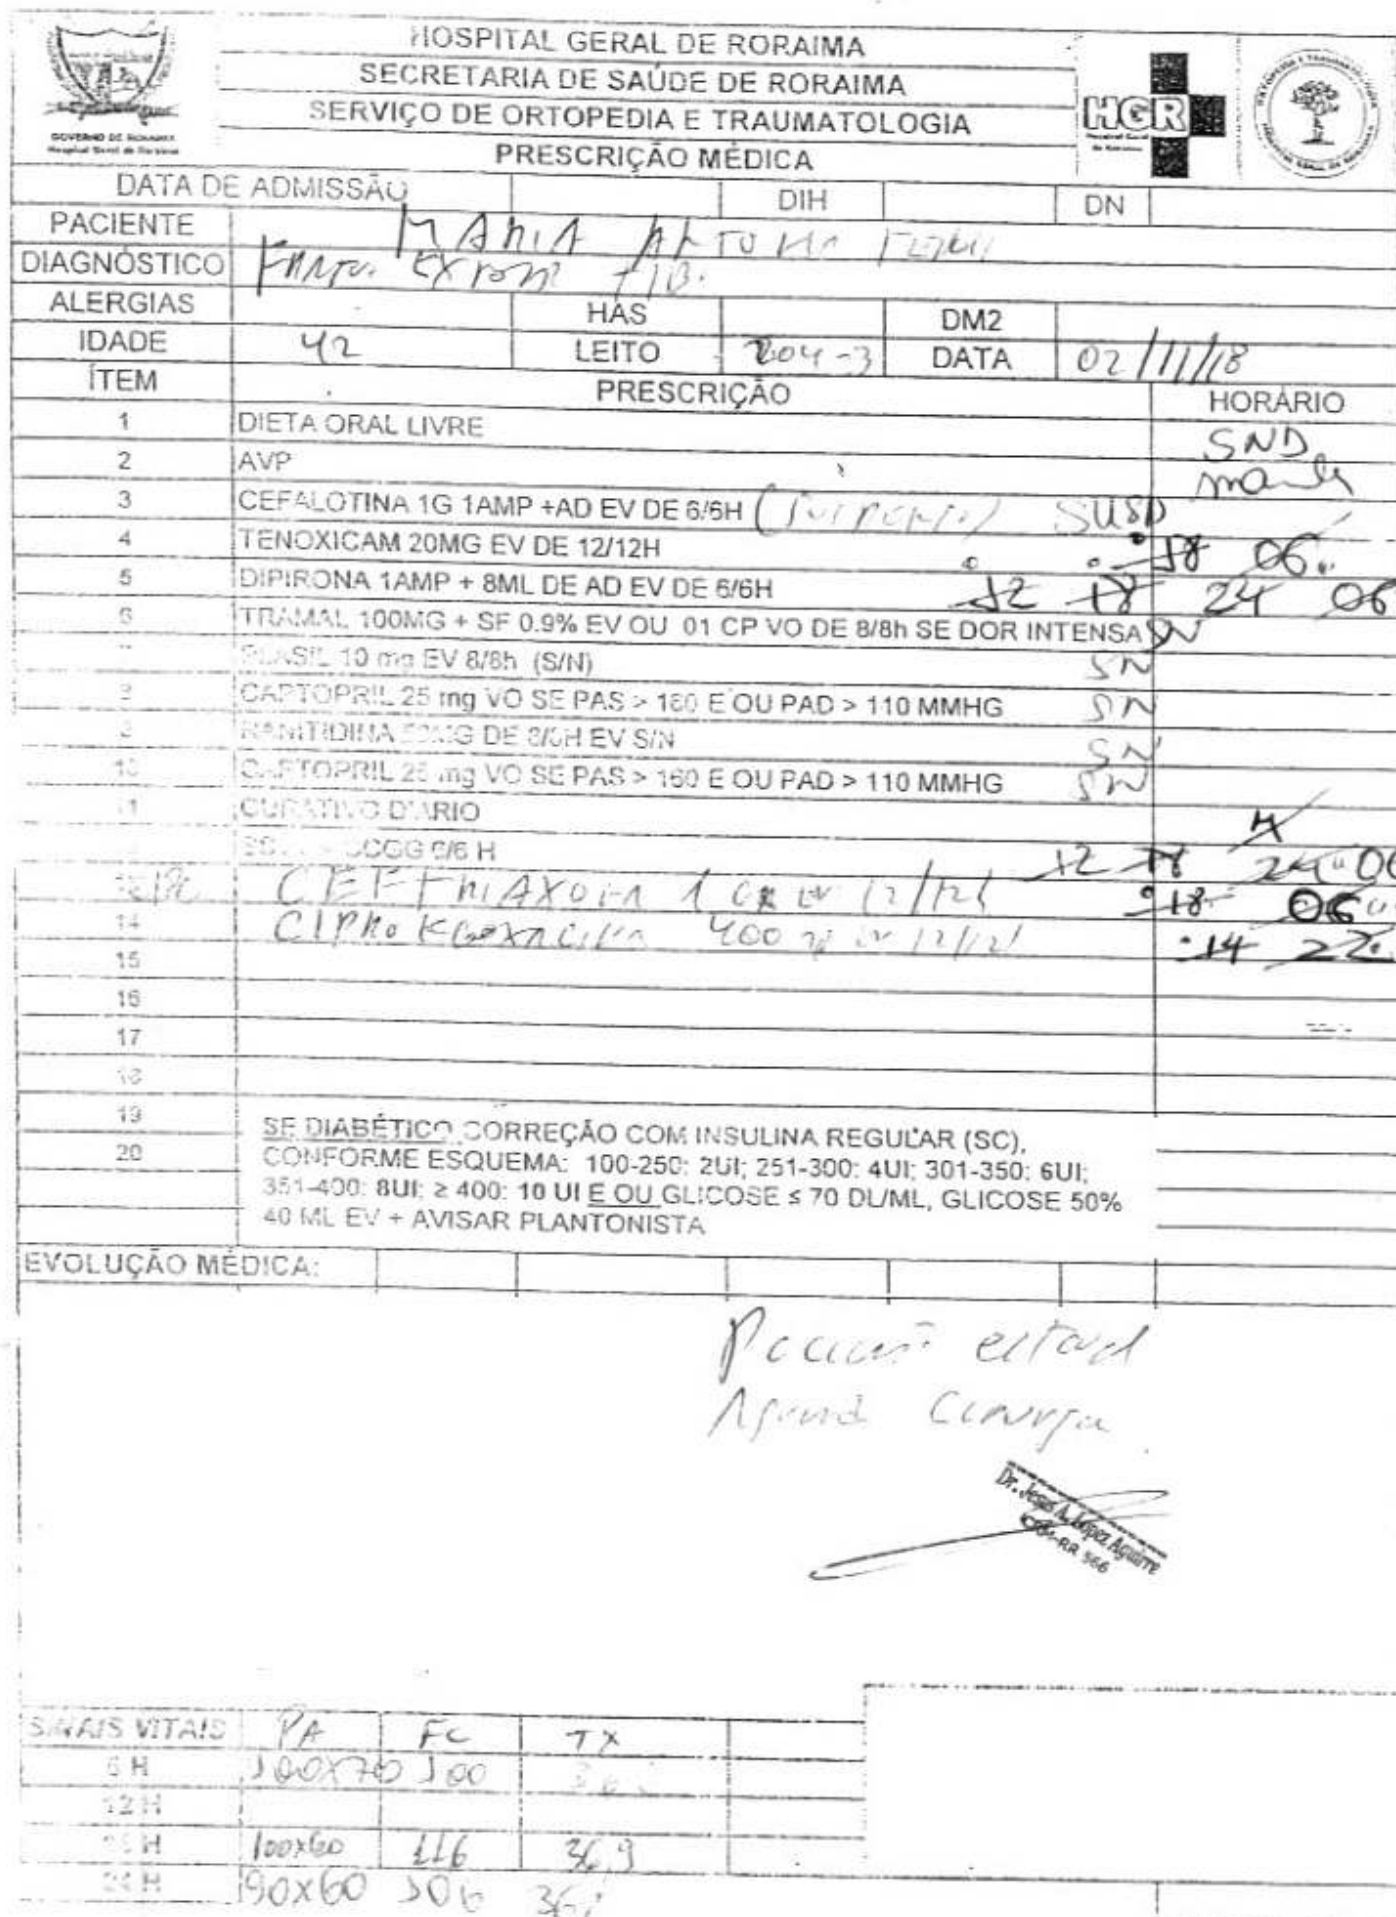 HOSPITAL GERAL DE RORAIMA
SECRETARIA DE SAÚDE DE RORAIMA
SERVIÇO DE ORTOPEDIA E TRAUMATOLOGIA
PRESCRIÇÃO MÉDICA
GOVERNO DE RORAIMA
Hospital Geral de Roraima
HGR
Hospital Geral de Roraima
DATA DE ADMISSÃO DIH DN
PACIENTE MARIA
DIAGNÓSTICO
ALERGIAS HAS DM2
IDADE 42 LEITO 204-3 DATA 02/11/18
ÍTEM PRESCRIÇÃO HORÁRIO
1 DIETA ORAL LIVRE SND
2 AVP
3 CEFALOTINA 1G 1AMP +AD EV DE 6/6H SUSP
4 TENOXICAM 20MG EV DE 12/12H 18 06
5 DIPIRONA 1AMP + 8ML DE AD EV DE 6/6H 12 18 24 06
6 TRAMAL 100MG + SF 0.9% EV OU 01 CP VO DE 8/8h SE DOR INTENSA SN
PLASIL 10 mg EV 8/8h (S/N) SN
CAPTOPRIL 25 mg VO SE PAS > 160 E OU PAD > 110 MMHG SN
RANITIDINA 50MG DE 8/8H EV S/N SN
10 CAPTOPRIL 25 mg VO SE PAS > 160 E OU PAD > 110 MMHG SN
11 CURATIVO DIÁRIO
6/6 H 12 18 24 06
CEFTRIAXONA 1 12/12h 18 06
14 CIPROFLOXACINA 400 12/12 14 22
15
16
17
18
19
20
SE DIABÉTICO CORREÇÃO COM INSULINA REGULAR (SC),
CONFORME ESQUEMA: 100-250: 2UI; 251-300: 4UI; 301-350: 6UI;
351-400: 8UI; ≥ 400: 10 UI E OU GLICOSE ≤ 70 DL/ML, GLICOSE 50%
40 ML EV + AVISAR PLANTONISTA
EVOLUÇÃO MÉDICA:
Dr. Jesus A. López Aguirre
CRM-RR 566
SINAIS VITAIS PA FC TX
6 H 100X70 100
12 H
18 H 100x60 116 36,9
24 H 90X60